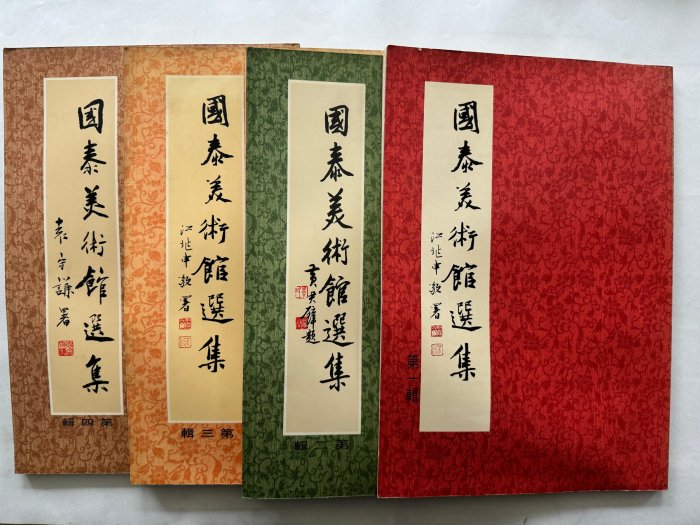 國泰美術館選集
袁守謙署
輯四第
國泰美術館選集
江兆申敬署
輯三第
國泰美術館選集
黃君璧題
輯二第
國泰美術館選集
江兆申敬署
第一輯